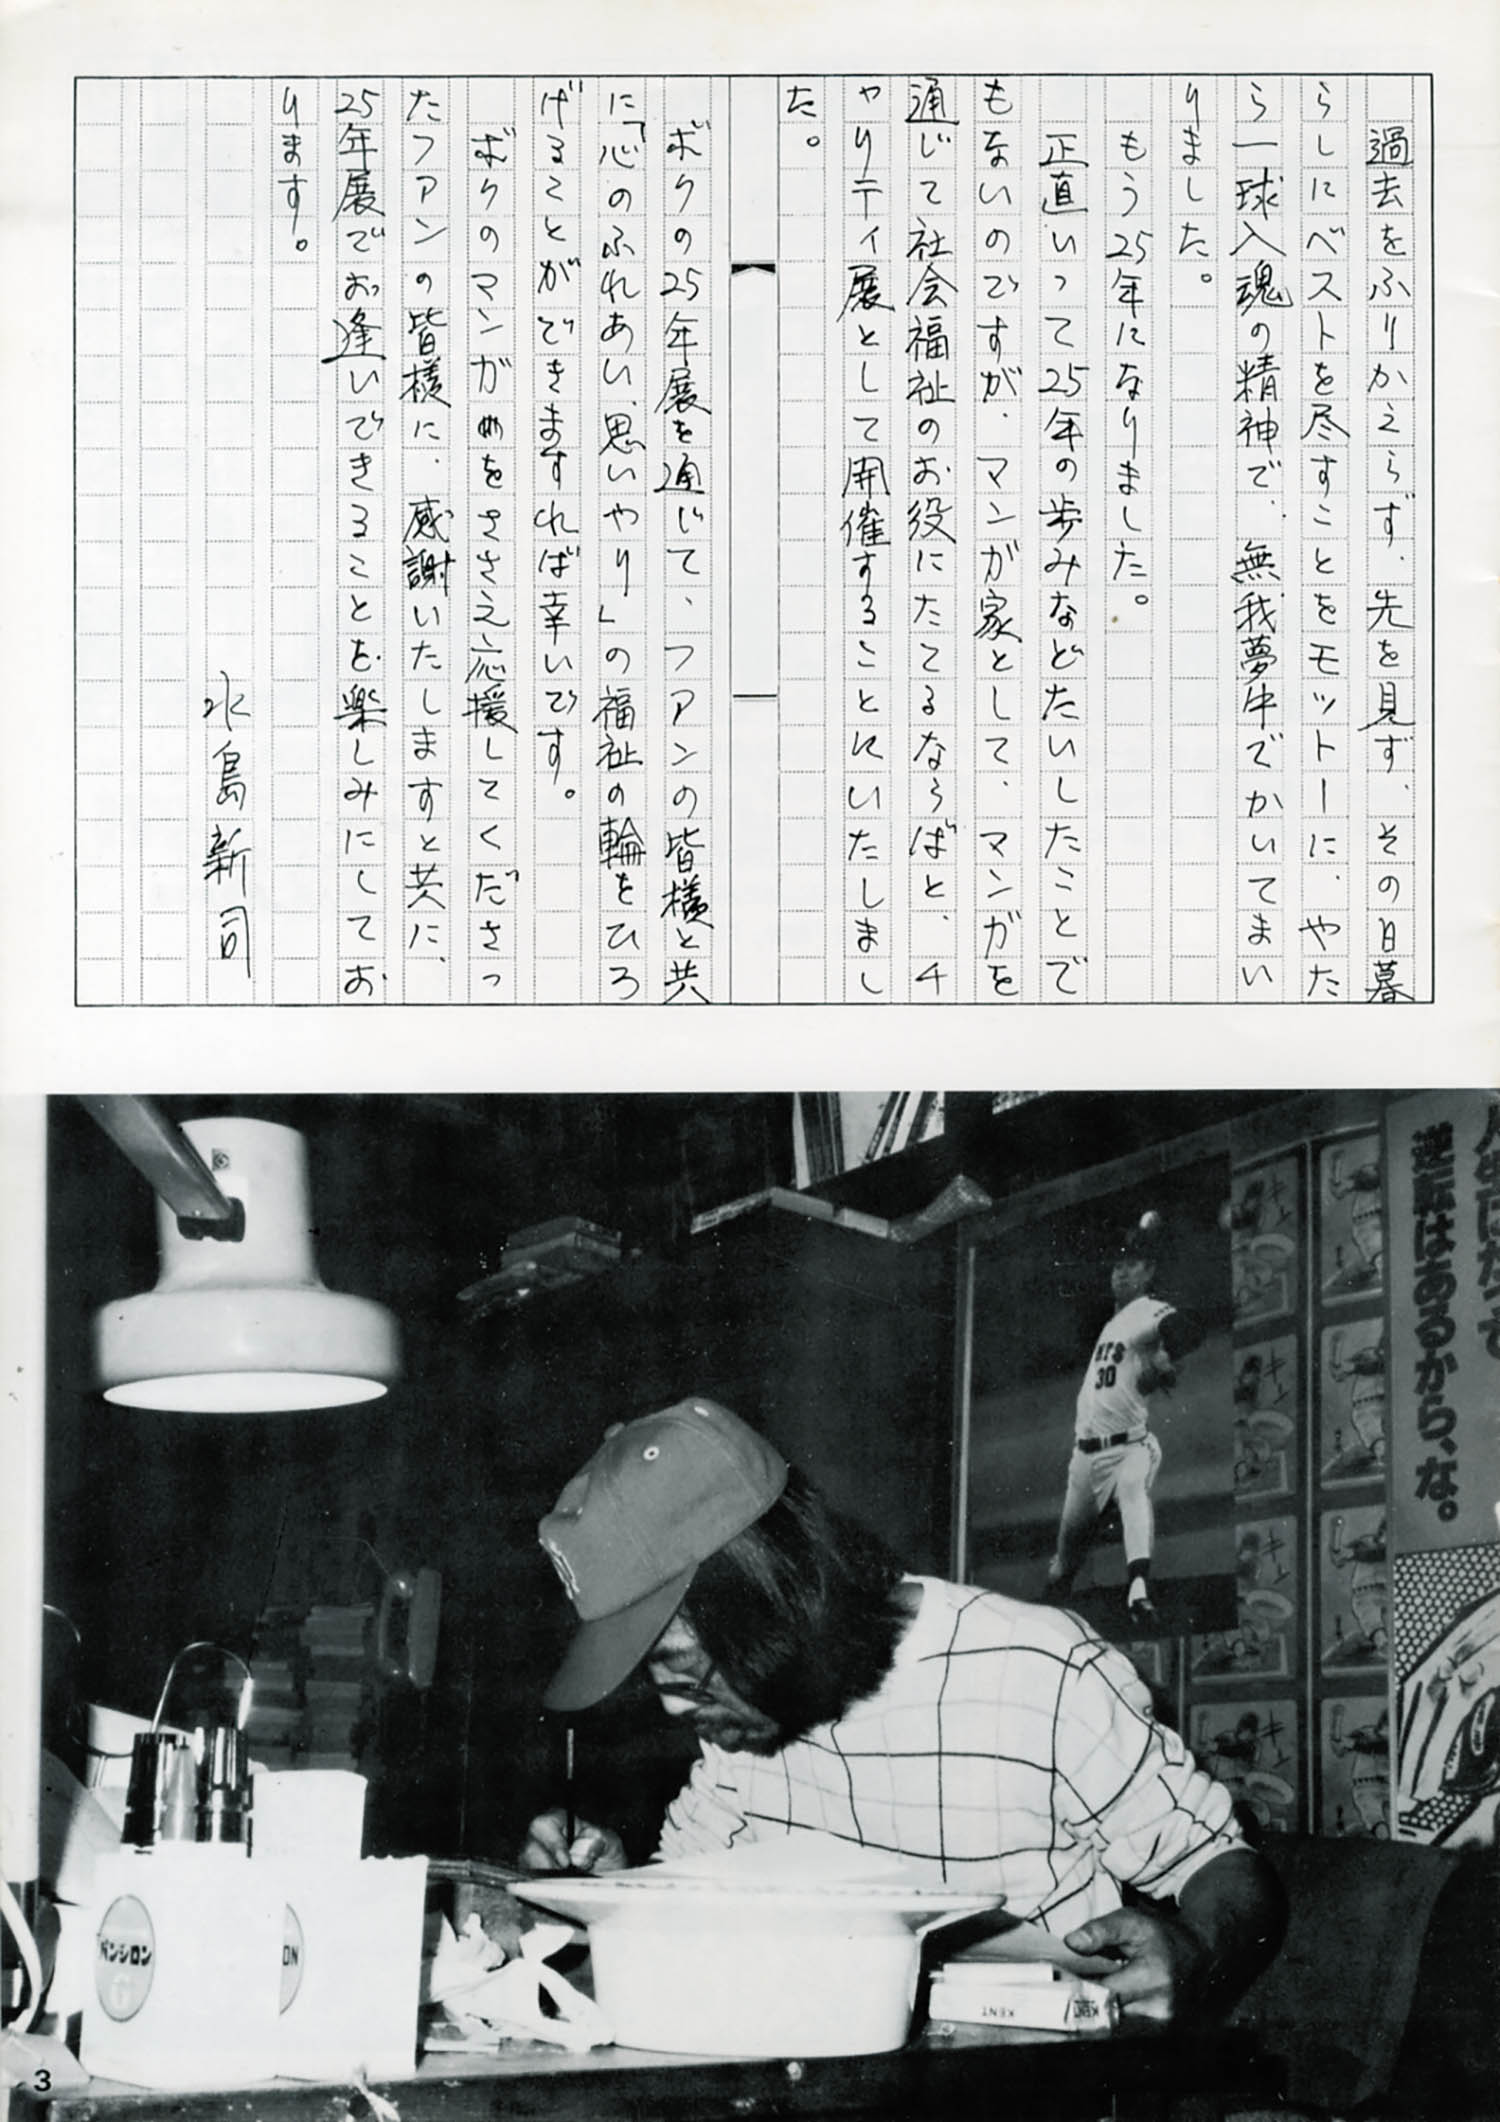 過去をふりかえらず、先を見ず、その日暮
らしにベストを尽すことをモットーに、やた
ら一球入魂の精神で、無我夢中でかいてまい
りました。
もう25年になりました。
正直いって25年の歩みなどたいしたことで
もないのですが、マンガ家として、マンガを
通じて社会福祉のお役にたてるならばと、チ
ャリティ展として開催することにいたしまし
た。
ボクの25年展を通じて、ファンの皆様と共
に「心のふれあい、思いやり」の福祉の輪をひろ
げることができますれば幸いです。
ボクのマンガをささえ応援してくださっ
たファンの皆様に、感謝いたしますと共に、
25年展でお逢いできることを楽しみにしてお
ります。
水島新司
逆転はあるから、な。
30
パンシロン
KENT
KENT
3